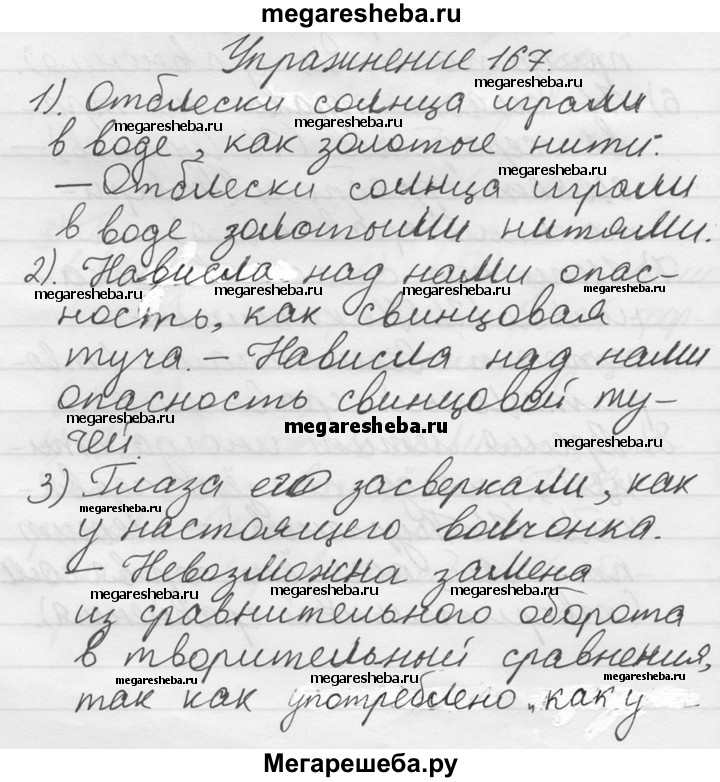 megaresheba.ru
Упражнение 167
megaresheba.ru
1). Отблески солнца играли
megaresheba.ru megaresheba.ru megaresheba.ru
в воде, как золотые нити.
megaresheba.ru
– Отблески солнца играли
в воде золотыми нитями.
megaresheba.ru
2). Нависла над нами опас-
megaresheba.ru megaresheba.ru megaresheba.ru megaresheba.ru
ность, как свинцовая
туча. – Нависла над нами
опасность свинцовой ту-
megaresheba.ru megaresheba.ru megaresheba.ru
чей.
3) Глаза его засверкали, как
megaresheba.ru
у настоящего волчонка.
– Невозможна замена
megaresheba.ru megaresheba.ru megaresheba.ru
из сравнительного оборота
в творительный сравнения,
megaresheba.ru megaresheba.ru megaresheba.ru
так как употреблено „как у
Мегарешеба.ру